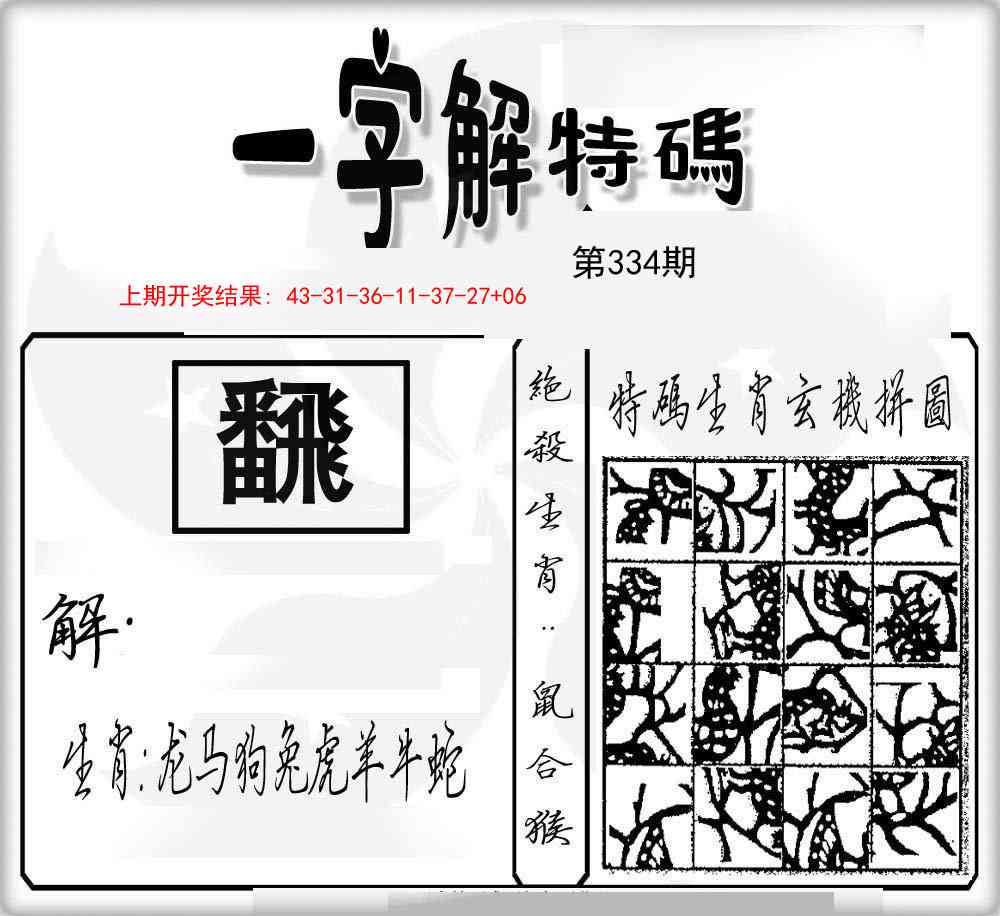 一字解特碼
第334期
上期开奖结果: 43-31-36-11-37-27+06
飜
解.
生肖:龙马狗兔虎羊牛蛇
絕殺生肖:鼠合猴
特碼生肖玄機拼圖